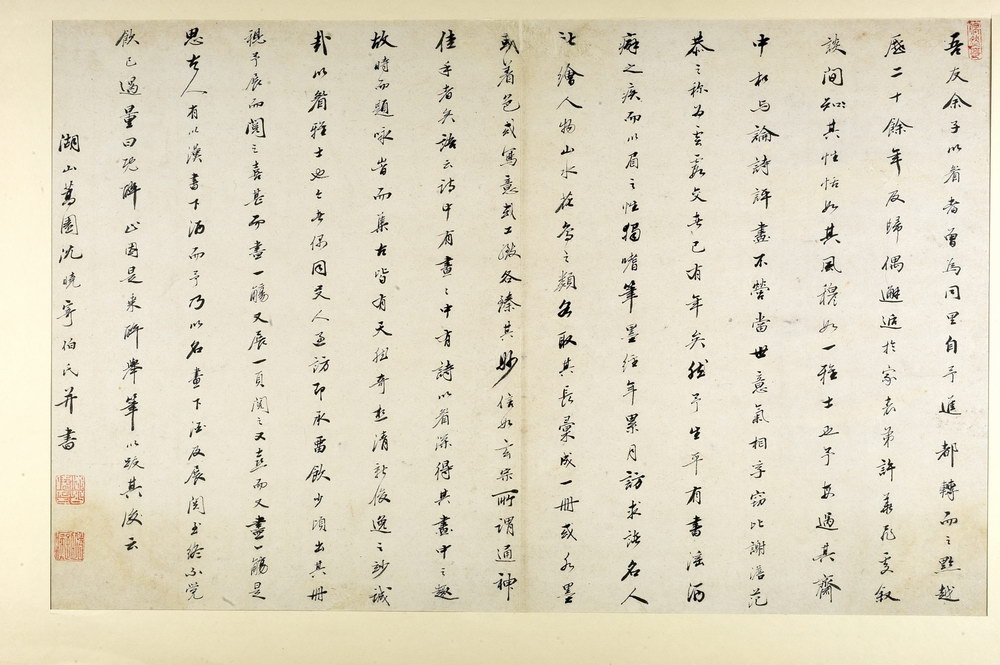 吾友余子以耆者曾為同里自予進都轉而之點越
歷二十餘年反歸偶邂逅於家表弟許義凡處敘
談間知其性恬如其風穆如一雅士也予每過其齋
中相与論詩評畫不營當世意氣相孚竊比謝澹范
恭之称為素交者已有年矣然予生平有書淫酒
癖之疾而以眉之性獨嗜筆墨經年累月訪求諸名人
諸繪人物山水花鳥之類各取其長彙成一冊或水墨
或着色或寫意或工緻各臻其妙信如玄宗所謂通神
佳手者矣語云詩中有畫畫中有詩以耆深得其畫中之趣
故時而題咏昔而集古皆有天趣奇想清新俊逸之妙誠
哉以耆雅士也今春偶同友人過訪即承留飲少頃出其冊
視予展而閱之喜甚而盡一觴又展一頁閱之又喜而又盡一觴是
思古人有以漢書下酒而予乃以名畫下酒反展閱玉終不覺
飲已過量曰既醉止因是乘醉舉筆以跋其後云
湖山舊圃沈曉寧伯氏并書